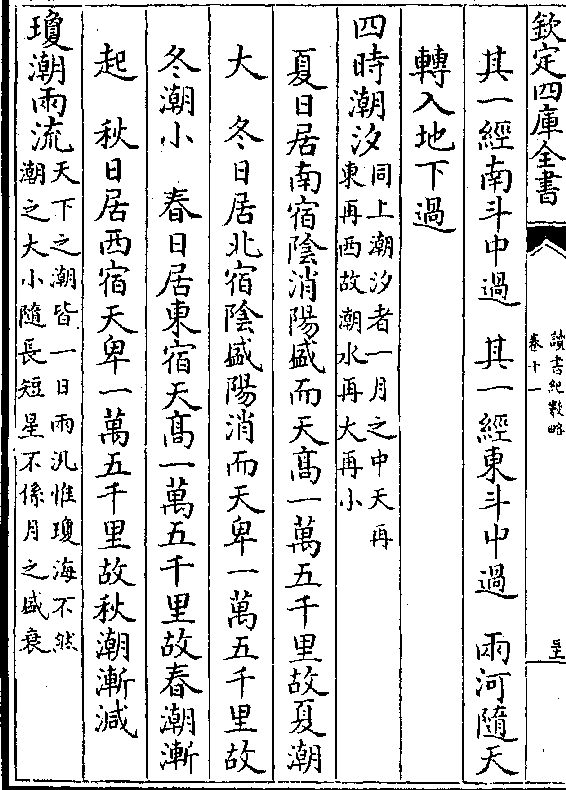 欽定四庫全書
讀書紀數略
卷十一
其一經南斗中過　其一經東斗中過　兩河隨天
轉入地下過
四時潮汐同上潮汐者一月之中天再
東再西故潮水再大再小
夏日居南宿陰消陽盛而天髙一萬五千里故夏潮
大　冬日居北宿陰盛陽消而天卑一萬五千里故
冬潮小　春日居東宿天髙一萬五千里故春潮漸
起　秋日居西宿天卑一萬五千里故秋潮漸減
瓊潮兩流天下之潮皆一日兩汎惟瓊海不然
潮之大小隨長短星不係月之盛衰